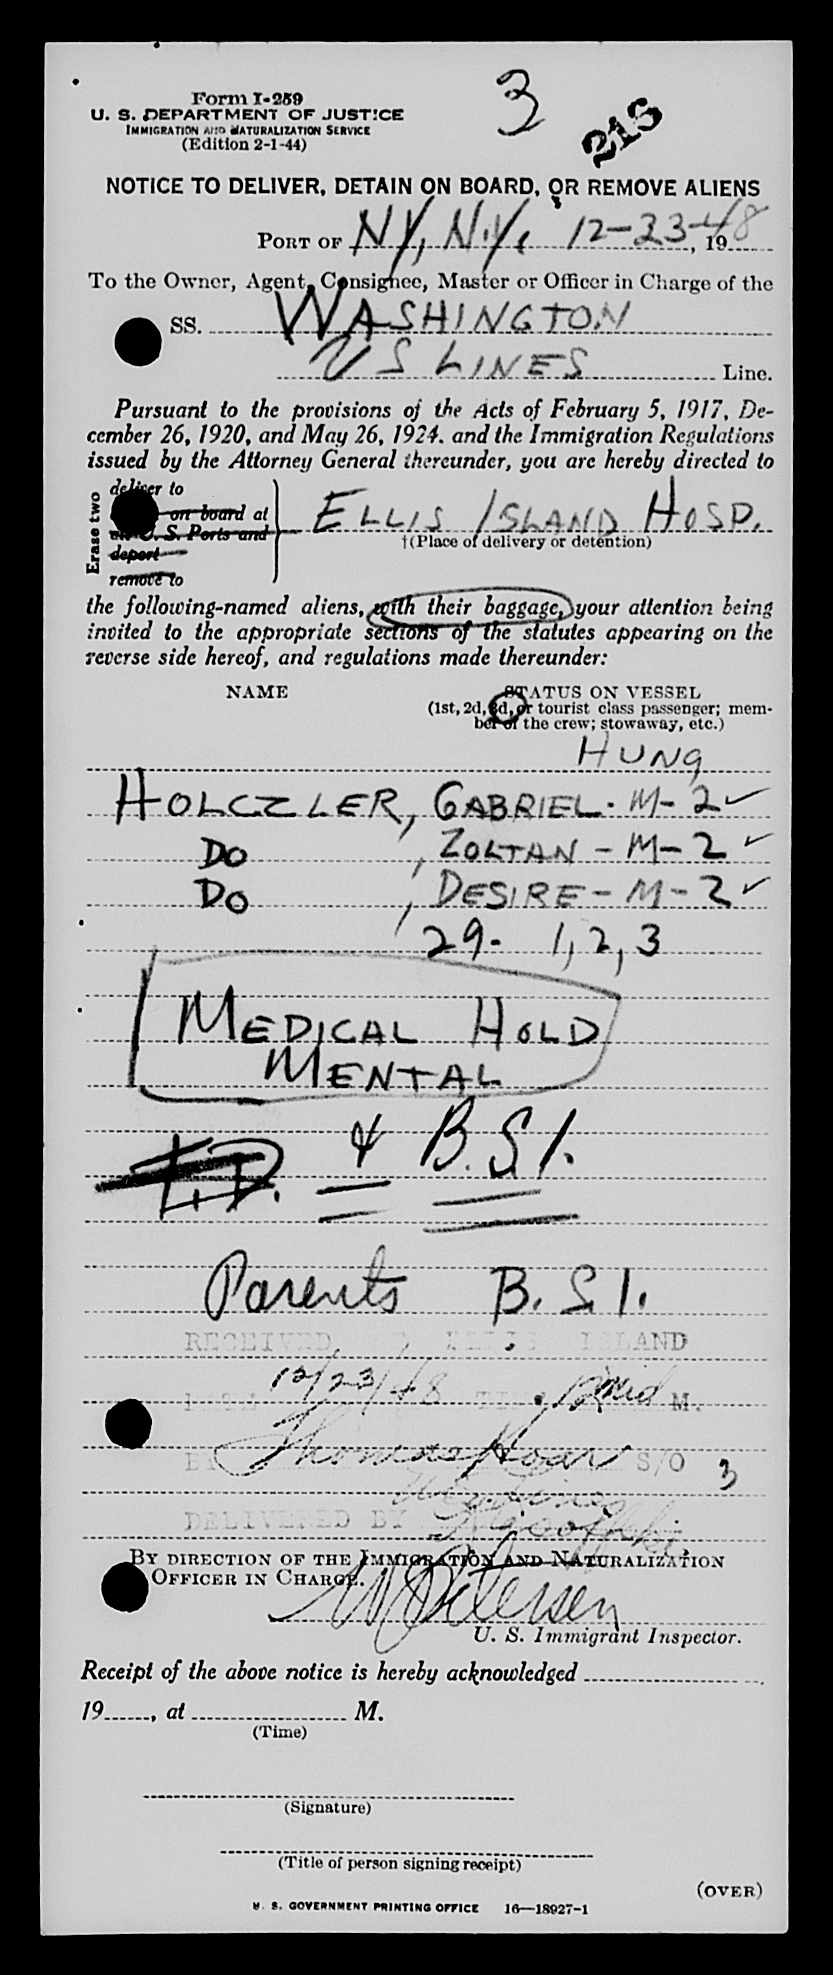 3
216
Form I-259
U. S. DEPARTMENT OF JUSTICE
IMMIGRATION AND NATURALIZATION SERVICE
(Edition 2-1-44)
NOTICE TO DELIVER, DETAIN ON BOARD, OR REMOVE ALIENS
PORT OF NY, N.Y. 12-23-48, 19
To the Owner, Agent, Consignee, Master or Officer in Charge of the
SS. WASHINGTON
US LINES Line.
Pursuant to the provisions of the Acts of February 5, 1917, De-
cember 26, 1920, and May 26, 1924, and the Immigration Regulations
issued by the Attorney General thereunder, you are hereby directed to
Erase two
deliver to
on board at
U. S. Ports and
deport
remove to
ELLIS ISLAND HOSP.
†(Place of delivery or detention)
the following-named aliens, with their baggage, your attention being
invited to the appropriate sections of the statutes appearing on the
reverse side hereof, and regulations made thereunder:
NAME STATUS ON VESSEL
(1st, 2d, 3d, or tourist class passenger; mem-
ber of the crew; stowaway, etc.)
HUNG
HOLCZLER, GABRIEL - M- 2 ✓
DO , ZOLTAN - M- 2 ✓
DO , DESIRE - M - 2 ✓
29- 1, 2, 3
MEDICAL HOLD
MENTAL
& B.S.I.
Parents B.S.I.
RECEIVED ELLIS ISLAND
12/23/48 12 Mid M.
BY Thomas Hoar S/O 3
DELIVERED BY
BY DIRECTION OF THE IMMIGRATION AND NATURALIZATION
OFFICER IN CHARGE.
Petersen
U. S. Immigrant Inspector.
Receipt of the above notice is hereby acknowledged
19, at M.
(Time)
(Signature)
(Title of person signing receipt)
(OVER)
U. S. GOVERNMENT PRINTING OFFICE 16—18927-1